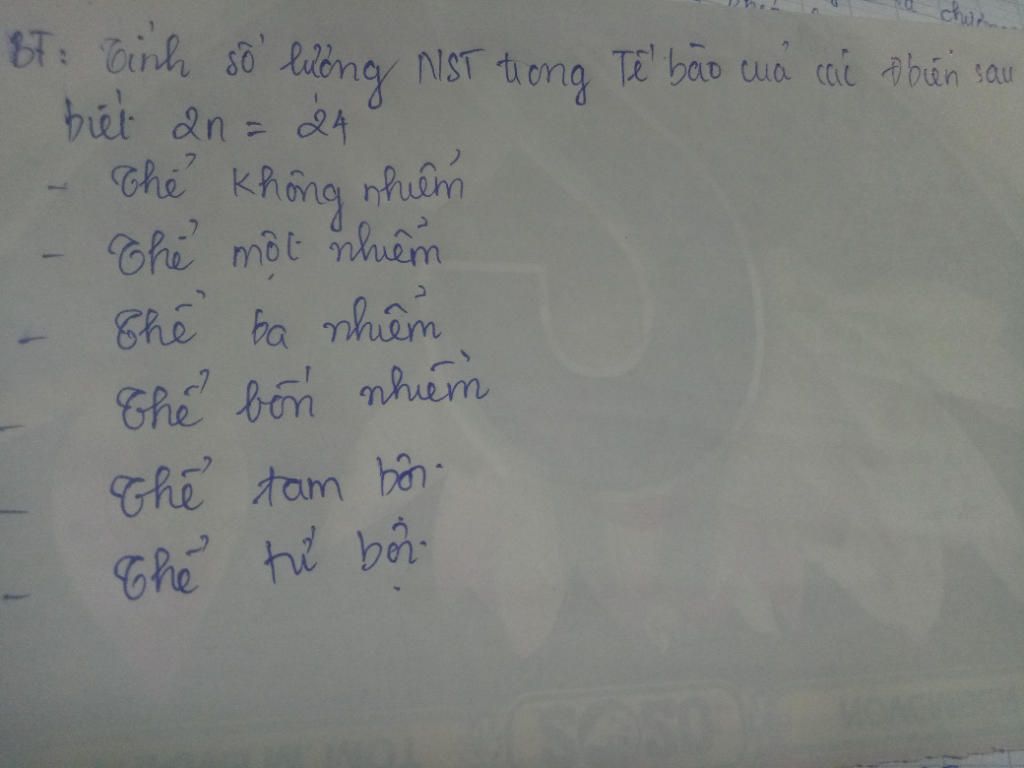 BT: Tính số lượng NST trong Tế bào của các Đbiến sau
biết 2n = 24
- Thể không nhiễm
- Thể một nhiễm
- Thể ba nhiễm
- Thể bốn nhiễm
- Thể tam bội.
- Thể tứ bội.